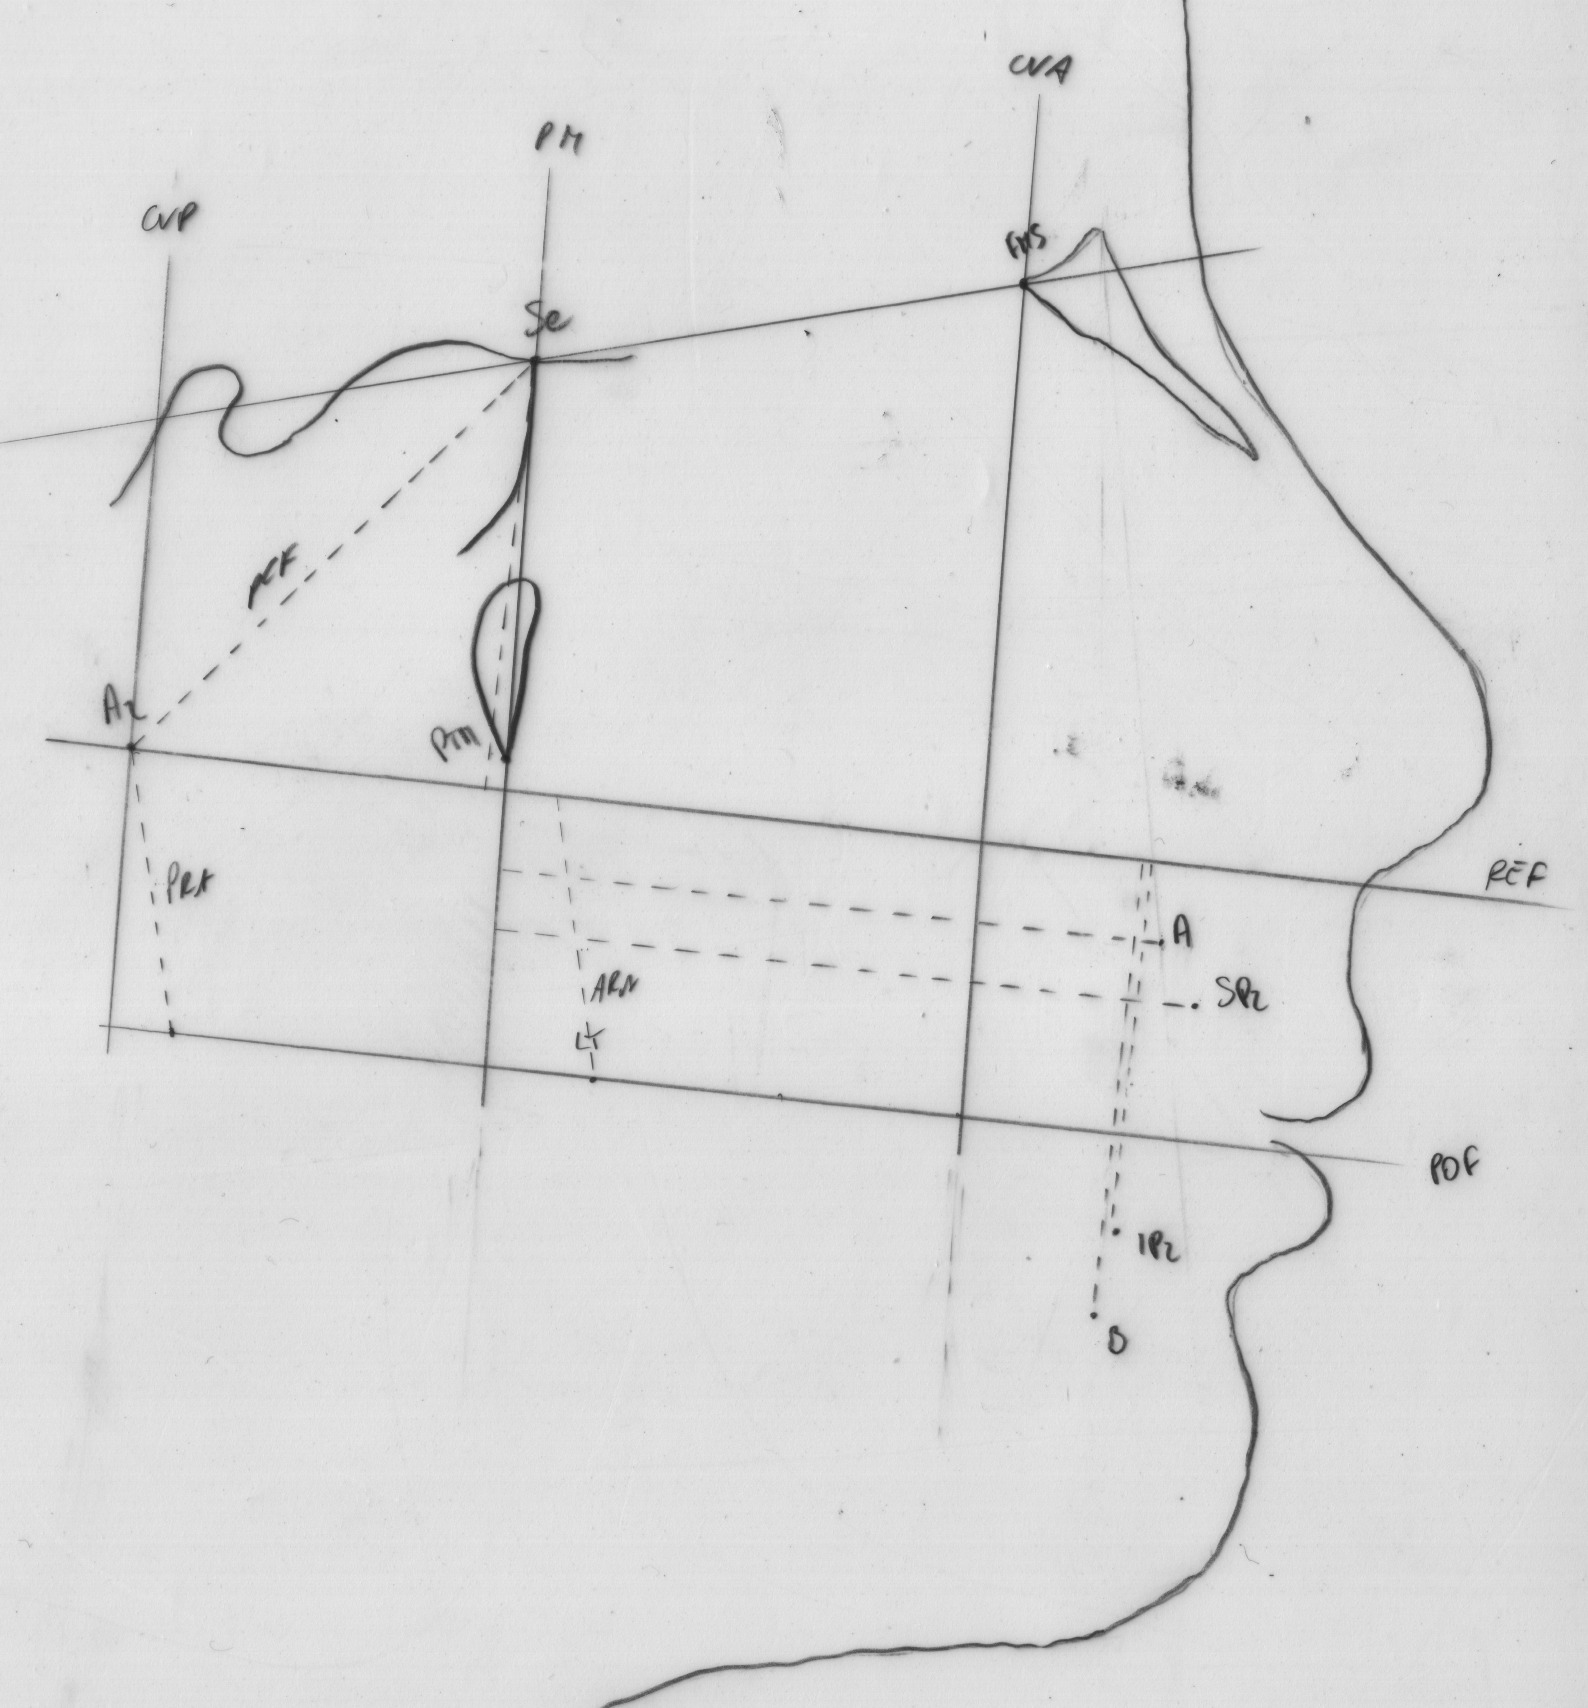 CVA
PM
CVP
FMS
Se
pCF
Ar
Ptm
REF
PRA
A
ARN
SPr
LT
POF
IPr
B